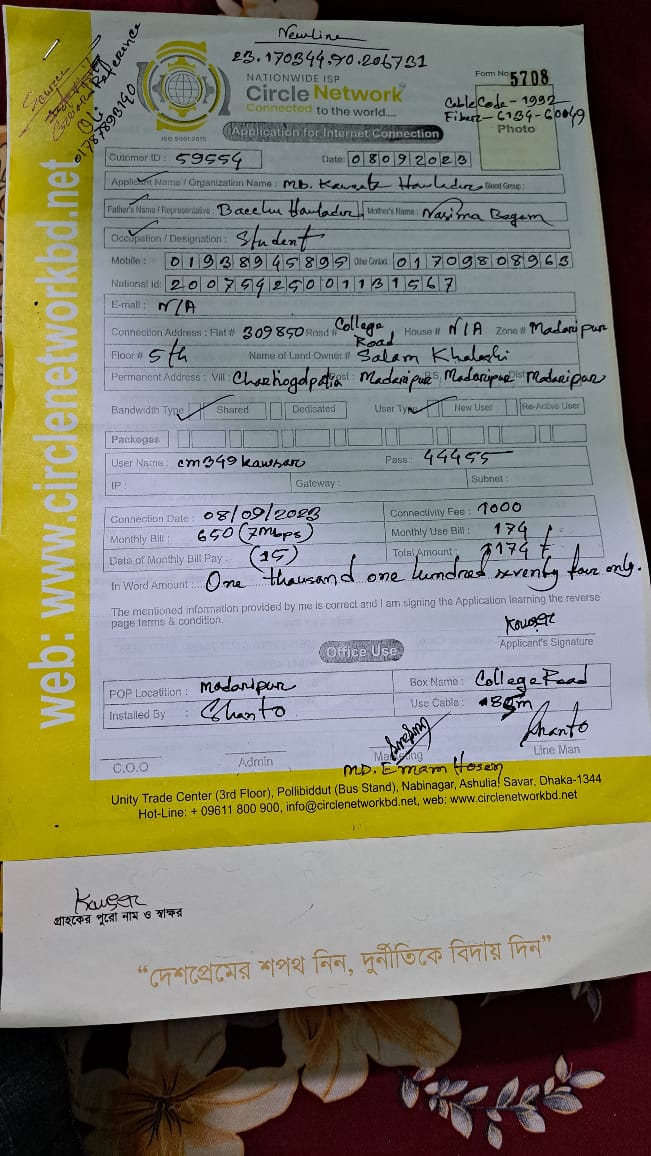 Newline
23.170344.90.206731
Reference
Oli
NATIONWIDE ISP
Circle Network
Connected to the world....
ISO 9001:2015
Form No 5708
Cable Code - 1992
Fiber - 6134 - 60049
Photo
Application for Internet Connection
Cutomer ID : 59554 Date: 08092023
Applicant Name / Organization Name : Md. Howlader Blood Group :
Father's Name / Representative : Bacchu Howlader Mother's Name : Nasima Begam
Occupation / Designation : Student
Mobile : 01938945895 Other Contact : 01709808963
National Id: 20075425001131567
E-mail : N/A
Connection Address : Flat # 309850 Road # College Road House # N/A Zone # Madaripur
Floor # 5th Name of Land Owner # Salam
Permanent Address : Vill : Post : Madaripur PS Madaripur Dist Madaripur
Bandwidth Type Shared Dedicated User Type New User Re-Active User
Packeges
User Name : cm349kawsar Pass : 44455
IP : Gateway : Subnet :
Connection Date : 08/09/2023 Connectivity Fee : 1000
Monthly Bill : 650 (7Mbps) Monthly Use Bill : 174
Date of Monthly Bill Pay : (15) Total Amount : 1174
In Word Amount : One thousand one hundred seventy four only.
The mentioned information provided by me is correct and I am signing the Application learning the reverse
page terms & condition.
Kouser
Applicant's Signature
Office Use
POP Locatition : Madaripur Box Name : College Road
Installed By : Shanto Use Cable :
Shanto
C.O.O Admin Marketing Line Man
MD. Emam Hosen
Unity Trade Center (3rd Floor), Pollibiddut (Bus Stand), Nabinagar, Ashulia, Savar, Dhaka-1344
Hot-Line: + 09611 800 900, info@circlenetworkbd.net, web: www.circlenetworkbd.net
web: www.circlenetworkbd.net
Kouser
গ্রাহকের পুরো নাম ও স্বাক্ষর
“দেশপ্রেমের শপথ নিন, দুর্নীতিকে বিদায় দিন”